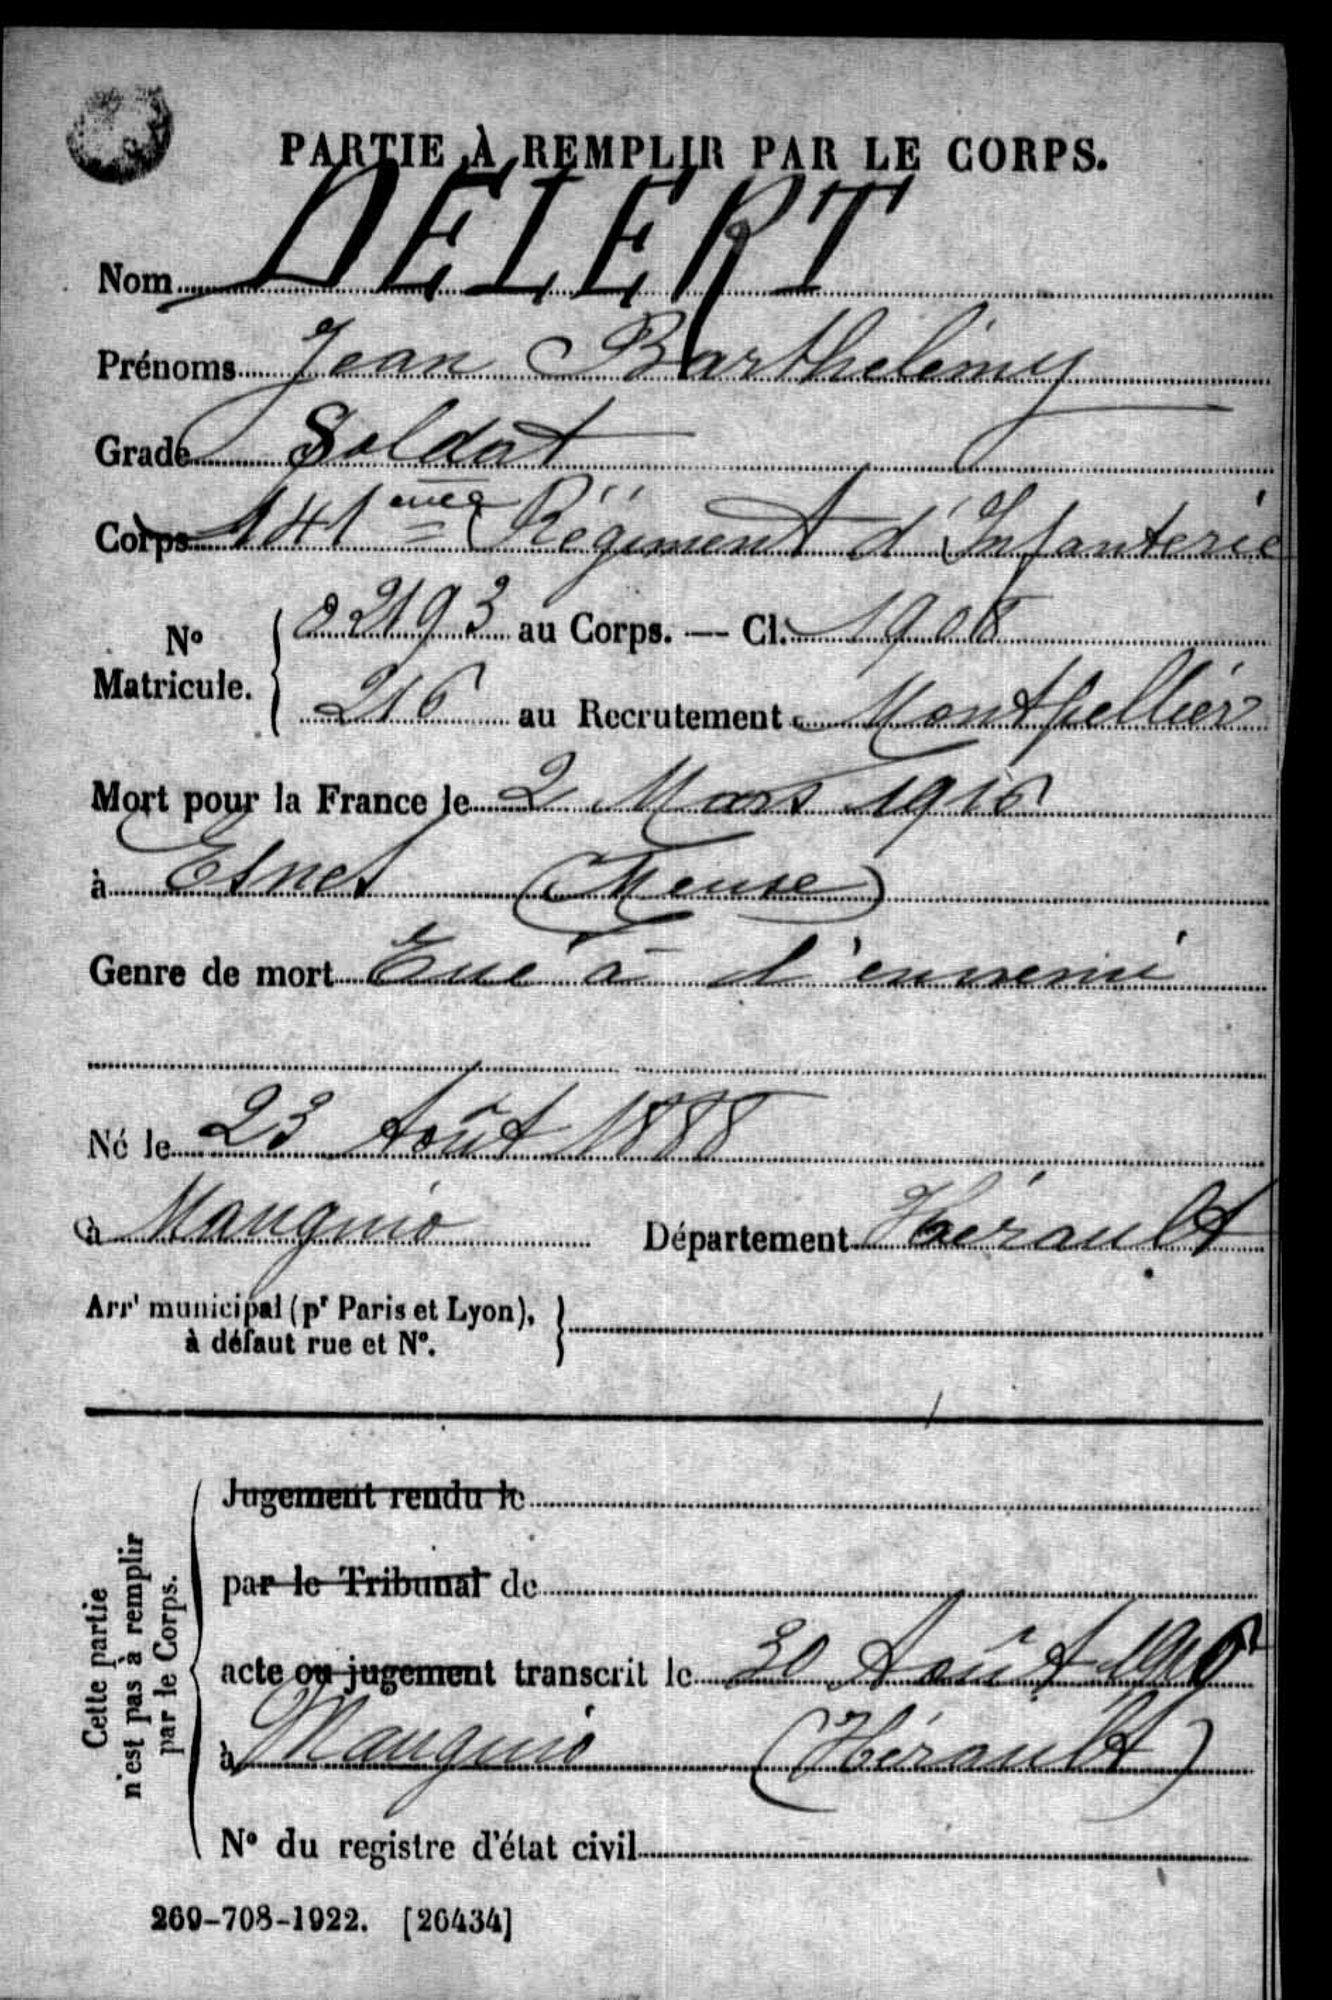 PARTIE À REMPLIR PAR LE CORPS.
Nom DELERT
Prénoms Jean Barthelémy
Grade Soldat
Corps 141ème Régiment d'Infanterie
N° Matricule. 02193 au Corps. — Cl. 1908
216 au Recrutement Montpellier
Mort pour la France le 2 Mars 1916
à Esnes (Meuse)
Genre de mort Tué à l'ennemi
Né le 23 Août 1888
à Mauguio Département Hérault
Arrt municipal (pr Paris et Lyon),
à défaut rue et N°.
Cette partie
n'est pas à remplir
par le Corps.
Jugement rendu le
par le Tribunal de
acte ou jugement transcrit le 30 Août 1916
à Mauguio (Hérault)
N° du registre d'état civil
269-708-1922. [26434]